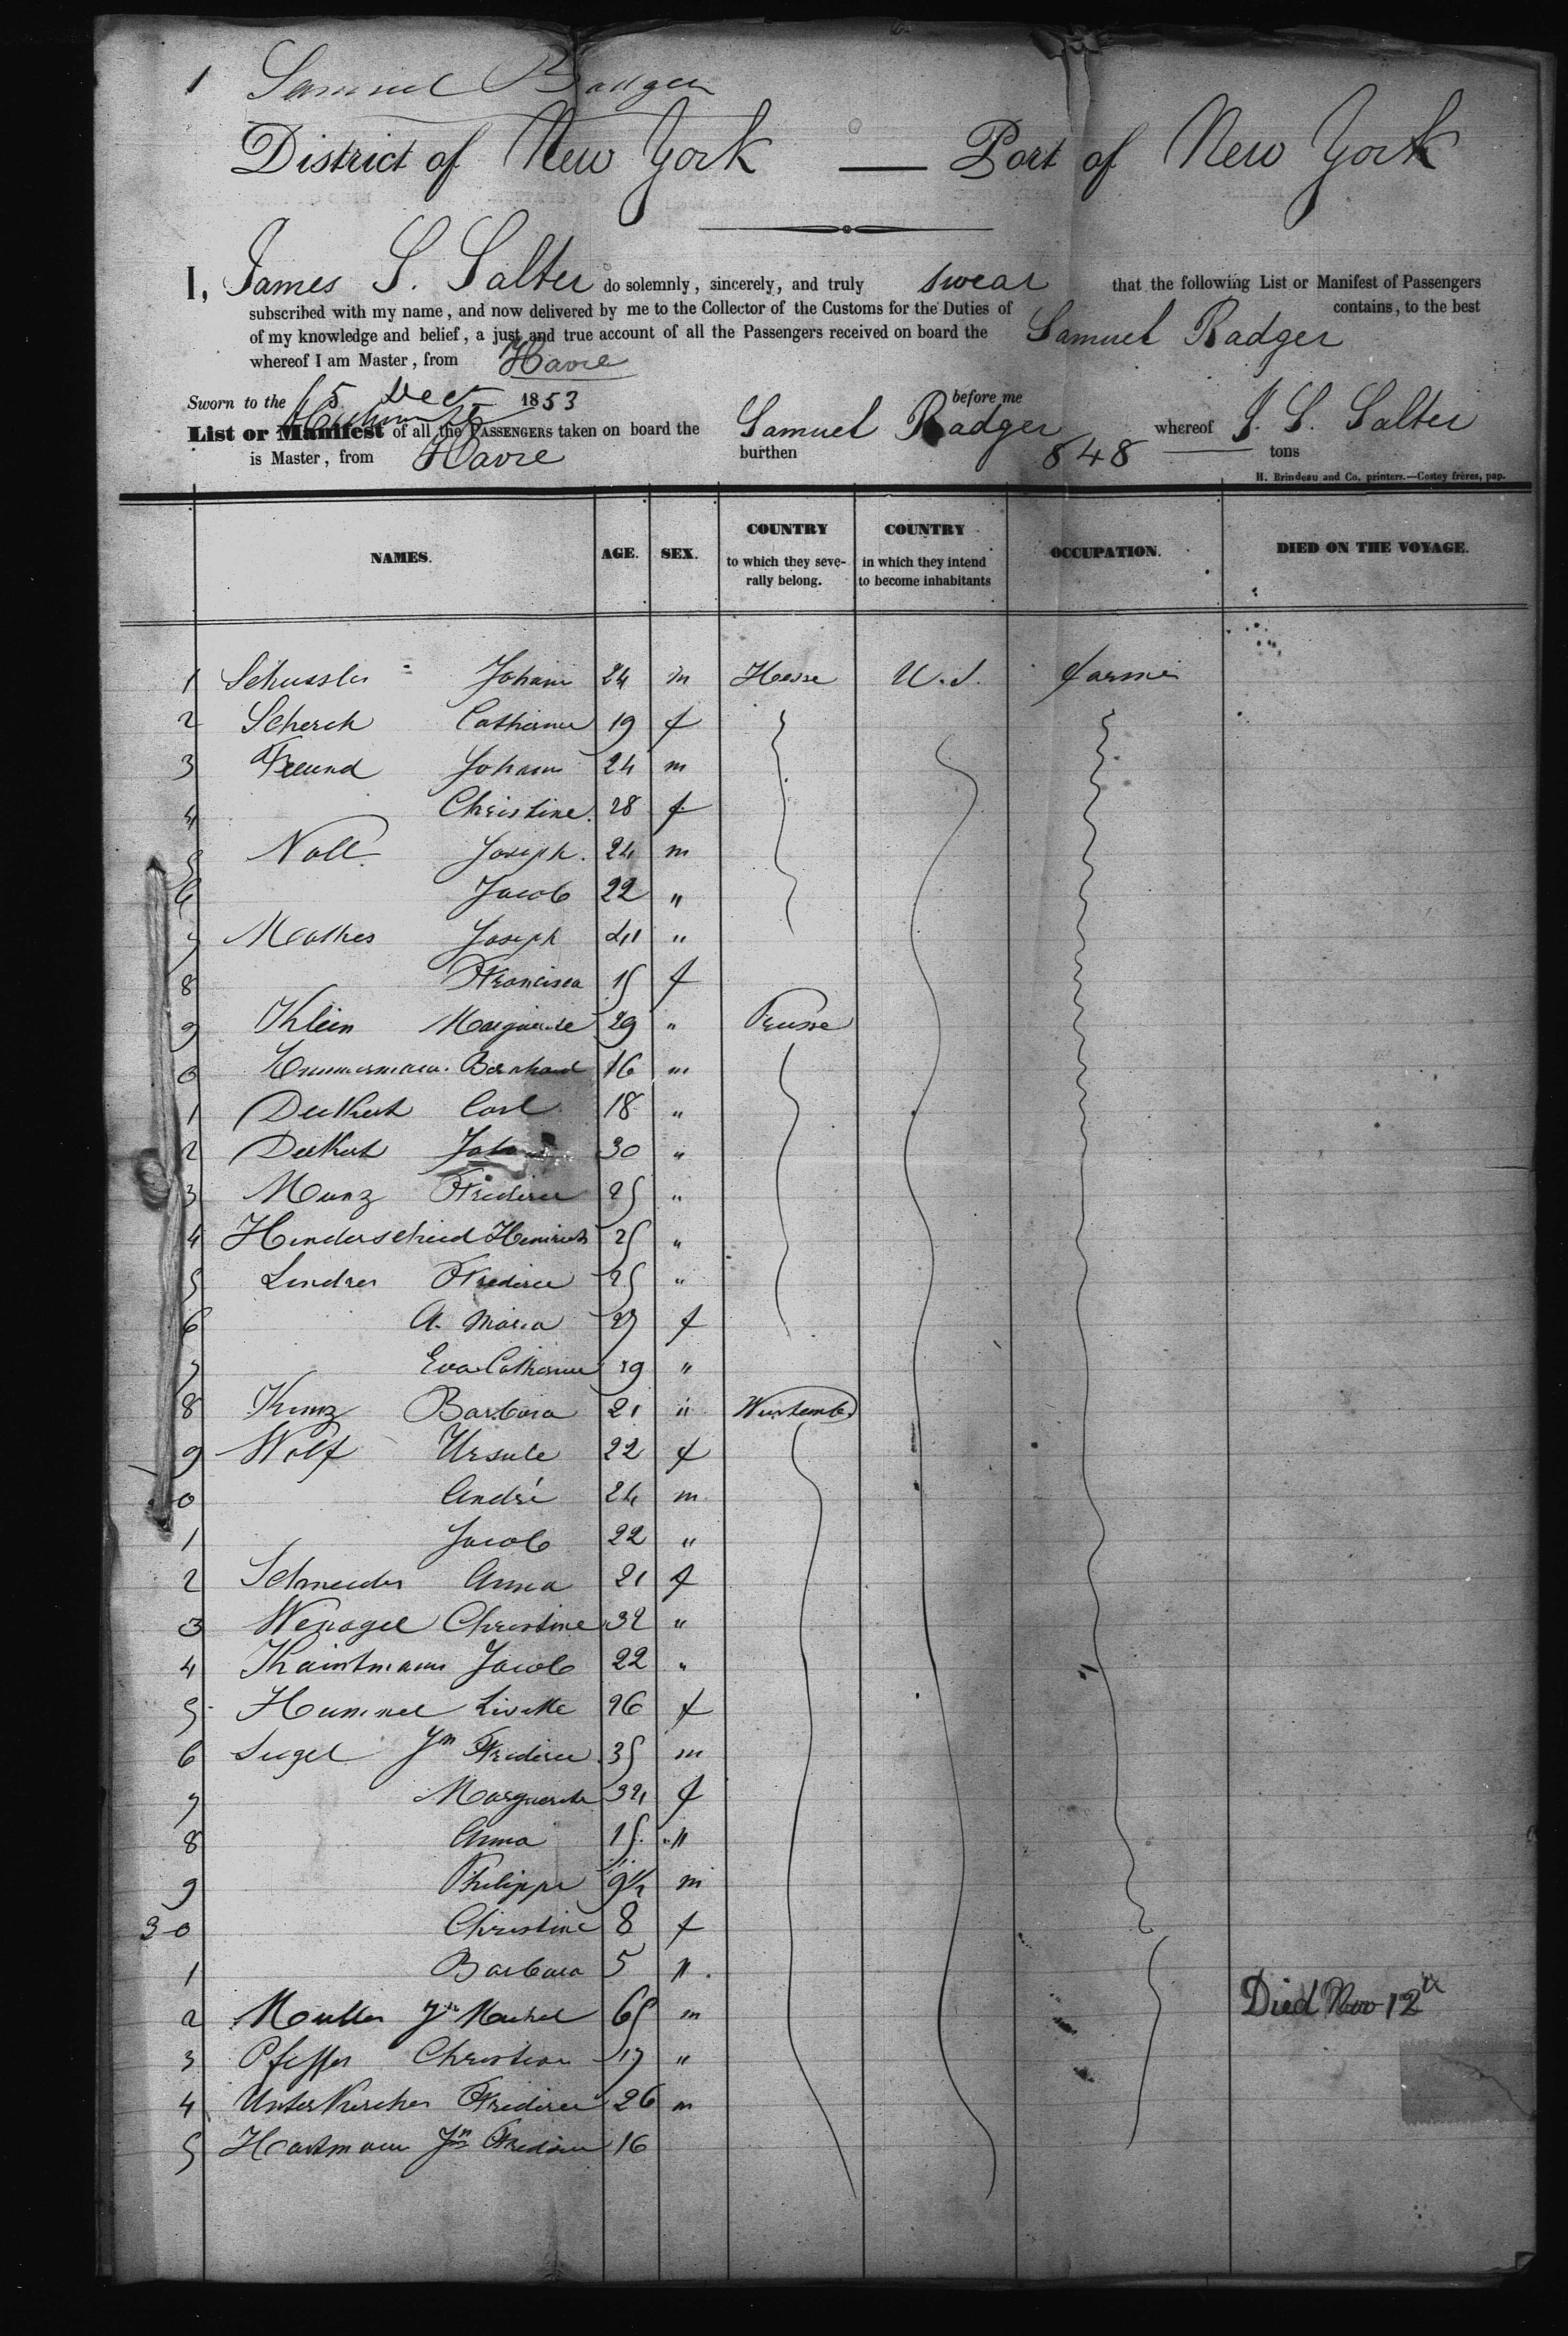 1 Samuel Badger
District of New York — Port of New York
I, James S. Salter do solemnly, sincerely, and truly swear that the following List or Manifest of Passengers
subscribed with my name, and now delivered by me to the Collector of the Customs for the Duties of contains, to the best
of my knowledge and belief, a just and true account of all the Passengers received on board the Samuel Badger
whereof I am Master, from Havre
Sworn to the 15 Dec 1853 before me
List or Manifest of all the PASSENGERS taken on board the Samuel Badger whereof J. S. Salter
is Master, from Havre burthen 848 tons
H. Brindeau and Co. printers.—Costey frères, pap.
NAMES. AGE. SEX. COUNTRY to which they severally belong. COUNTRY in which they intend to become inhabitants OCCUPATION. DIED ON THE VOYAGE.
1 Schussler Johann 24 m Hesse U.S. farmer
2 Scherch Catharina 19 f
3 Freund Johann 24 m
4 Christine 28 f
5 Noll Joseph 24 m
6 Jacob 22 "
7 Mathes Joseph "
8 Francisca 15 f
9 Klein Marguerite 29 " Prusse
0 Zimmermann Bernhard 16 m
1 Deckert Carl 18 "
2 Deckert 30 "
3 Munz Frederic 25 "
4 Hinderscheid Heinrich 25 "
5 Lendres Frederic 25 "
6 A. Maria 27 f
7 Eva Catharina 19 "
8 Kunz Barbara 21 " Wurtemb
9 Wolf Ursule 22 f
0 André 24 m
1 Jacob 22 "
2 Schneider Anna 21 f
3 Wenagel Christine 32 "
4 Jacob 22 "
5 Hummel Livette 26 f
6 Siegel Jn Frederic 35 m
7 Marguerite 34 f
8 Anna 15 "
9 Philippe 9 1/2 m
30 Christine 8 f
1 Barbara 5 "
2 Moutter Jn Michel 65 m Died Nov 12th
3 Pfeffer Christian 17 "
4 Unterkircher Frederic 26 m
5 Hartmann Jn Frederic 16